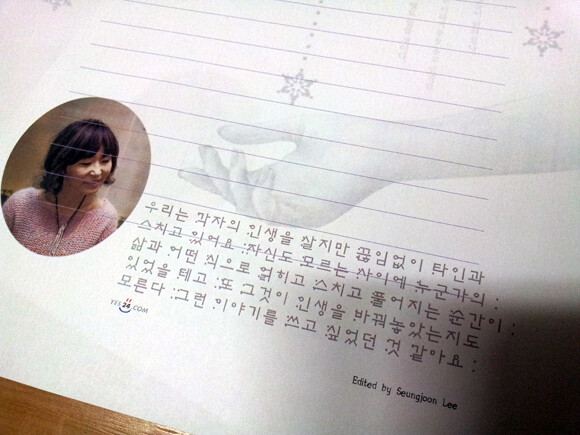 우리는 각자의 인생을 살지만 끊임없이 타인과
스치고 있어요 :자신도 모르는 사이에 누군가의 :
삶과 어떤 식으로 얽히고 스치고 풀어지는 순간이 :
있었을 테고 :또 그것이 인생을 바꿔놓았는지도
모른다 :그런 이야기를 쓰고 싶었던 것 같아요 :
YES24.COM
Edited by Seungjoon Lee